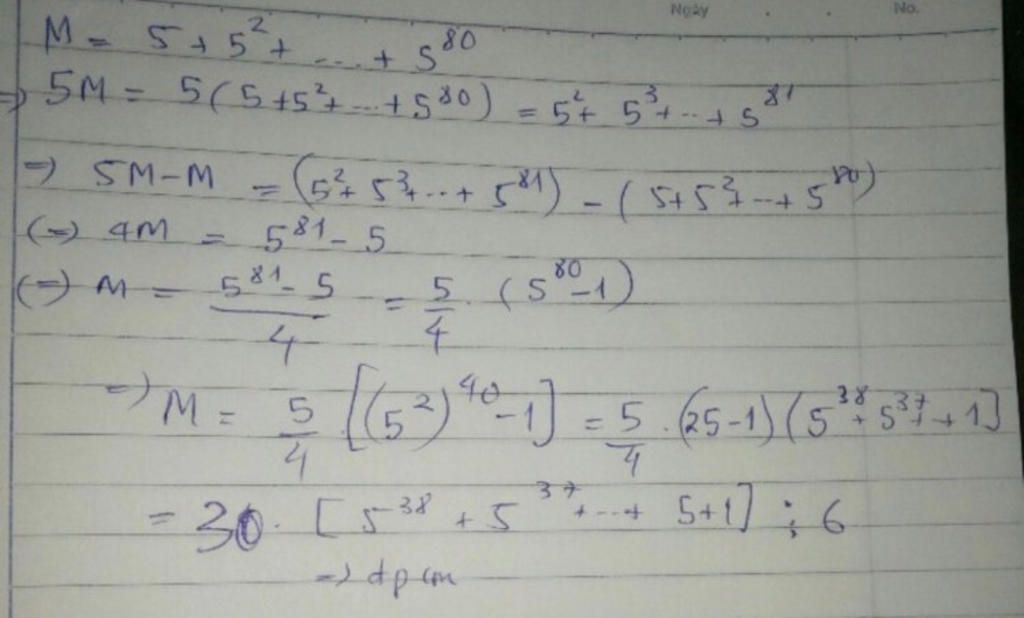 Ngày . . No.
M = 5 + 5² + ... + 5⁸⁰
=> 5M = 5(5+5²+...+5⁸⁰) = 5²+ 5³+...+ 5⁸¹
=) 5M-M = (5²+ 5³+...+ 5⁸¹) - (5+5²+...+5⁸⁰)
(=) 4M = 5⁸¹ - 5
(=) M = (5⁸¹ - 5)/4 = 5/4 . (5⁸⁰-1)
=) M = 5/4 [(5²)⁴⁰-1] = 5/4 . (25-1)(5³⁸+5³⁷+..+1]
= 30. [5³⁸ + 5³⁷+...+ 5+1] ⋮ 6
=) đpcm